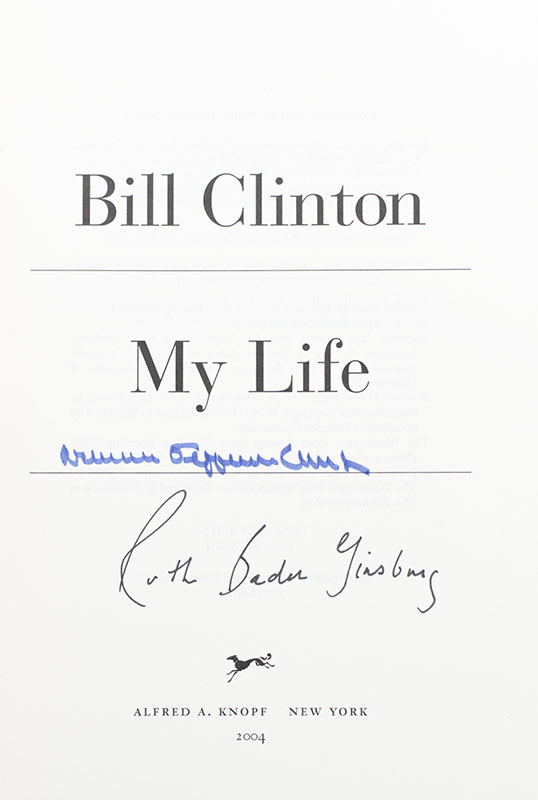 Bill Clinton
My Life
Ruth Bader Ginsburg
ALFRED A. KNOPF NEW YORK
2004